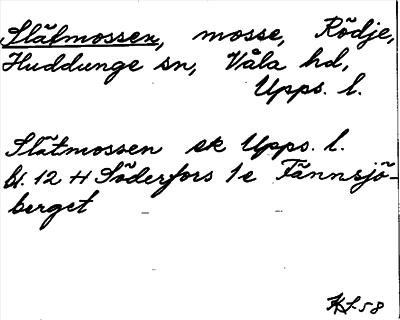 Slätmossen, mosse, Rödje,
Huddunge sn, Våla hd,
Upps. l.
Slätmossen sk Upps. l.
bl. 12 H Söderfors 1e Tännsjö-
berget
HS-58